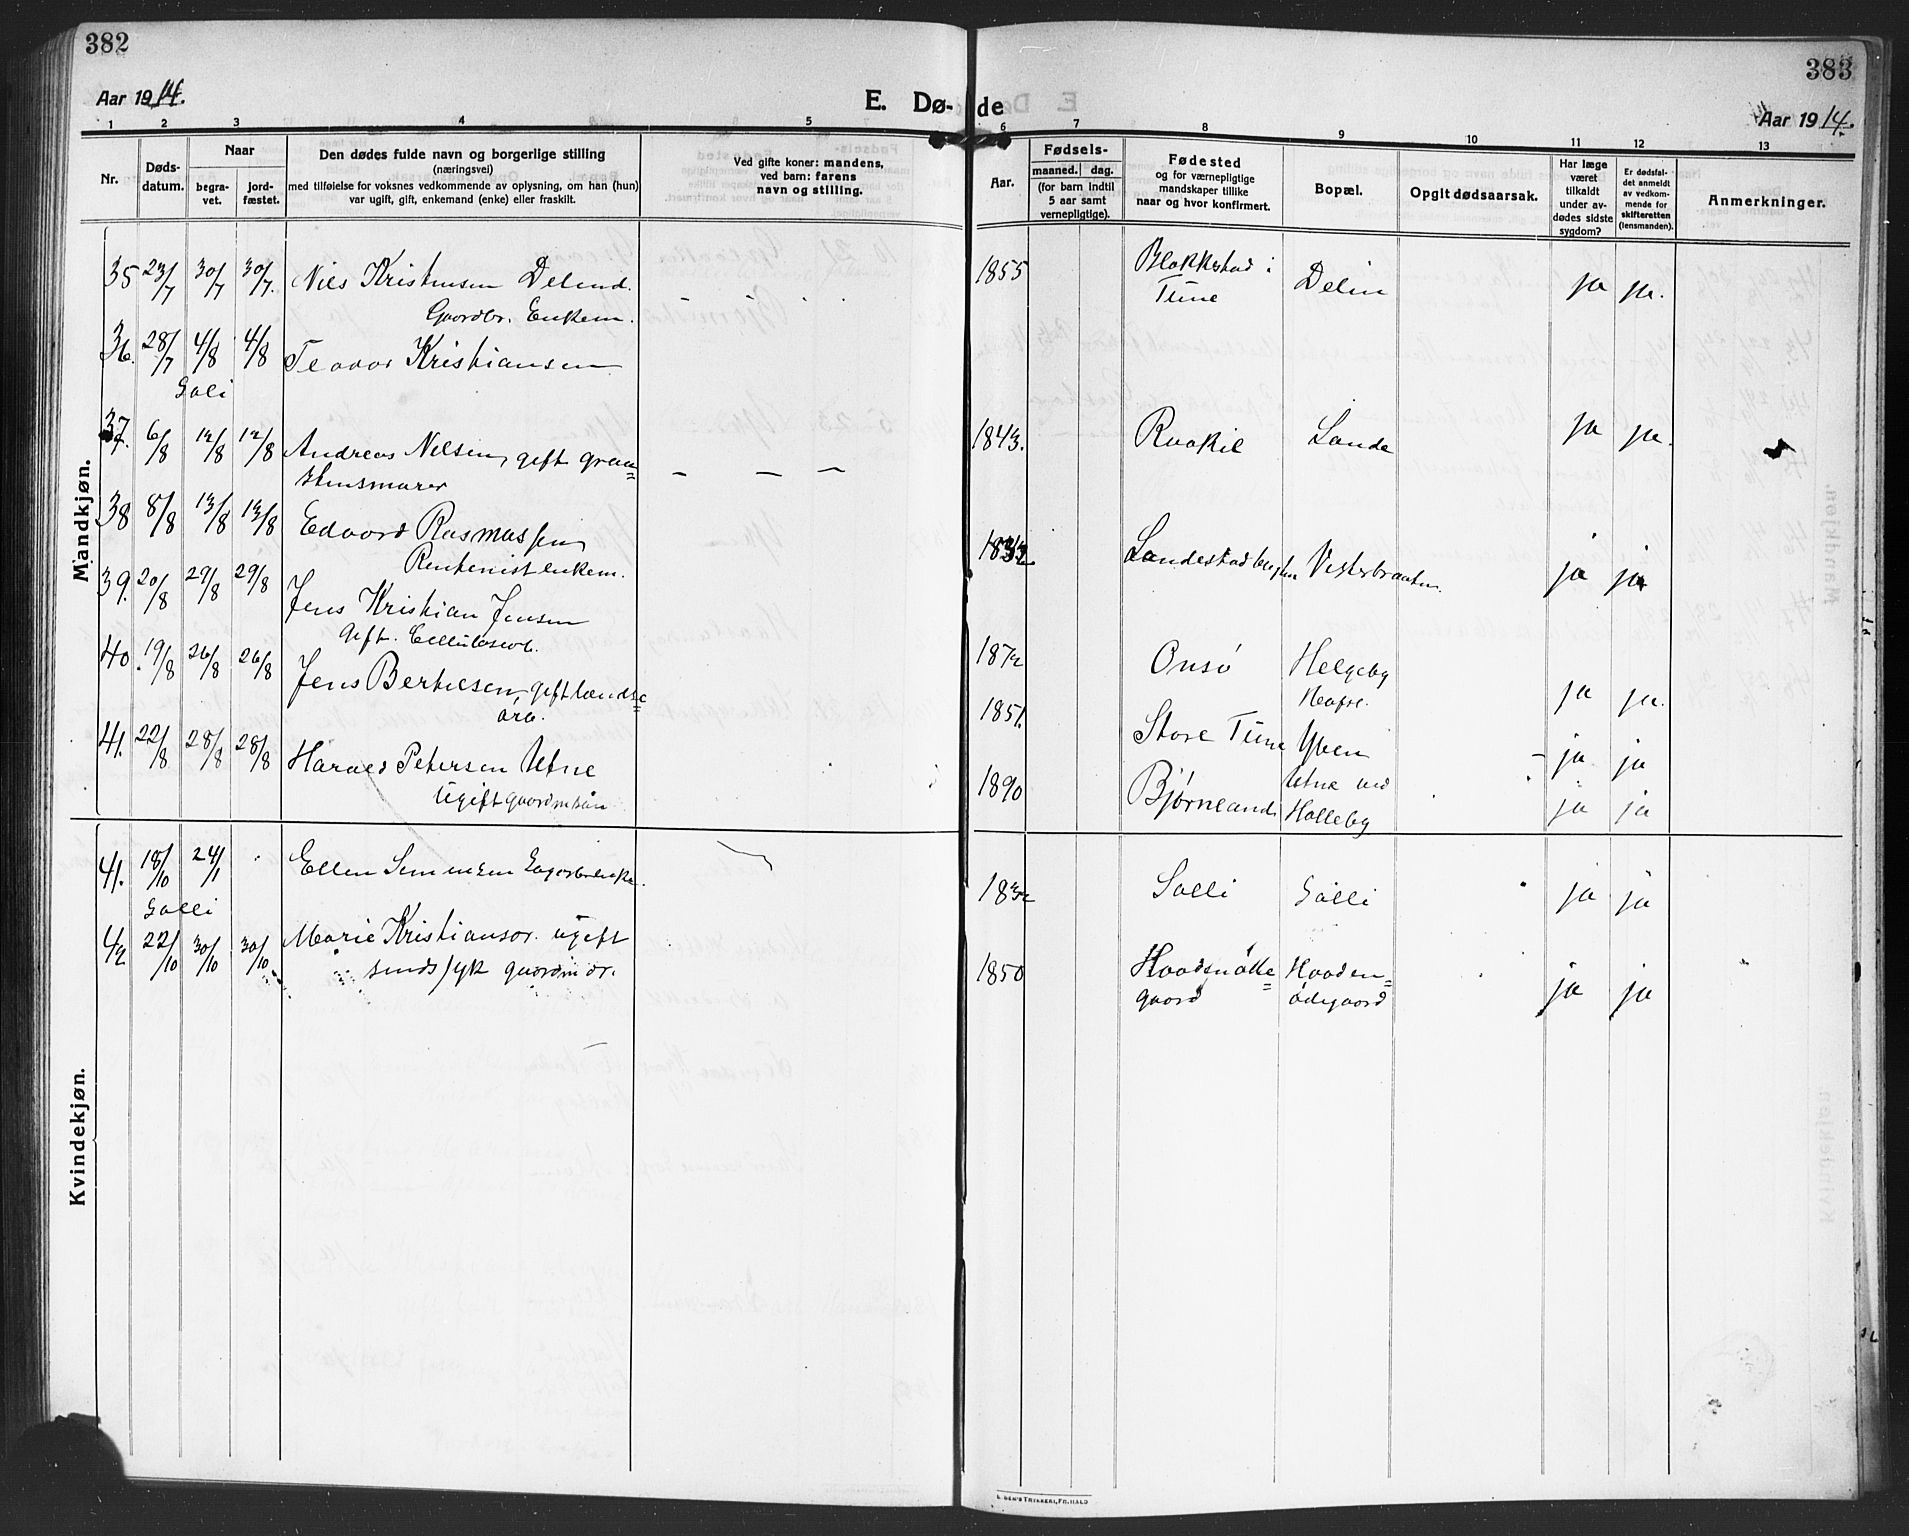 382
Aar 1914.
E. Dø-
1 2 3 4 5
Nr.
Døds-
datum.
Naar
begra-
vet.
jord-
fæstet.
Den dødes fulde navn og borgerlige stilling
(næringsvei)
med tilføielse for voksnes vedkommende av oplysning, om han (hun)
var ugift, gift, enkemand (enke) eller fraskilt.
Ved gifte koner: mandens,
ved barn: farens
navn og stilling.
Mandkjøn.
35 23/7 30/7 30/7. Nils Kristensen Delind.
Gaardbr. Enkem.
36. 28/7 4/8 4/8 Teodor Kristiansen
Soli
37. 6/8 12/8 12/8 Andreas Nilsen, gift
38 8/8 13/8 13/8 Edvard Rasmussen
Rentenist enkem.
39. 20/8 29/8 29/8 Jens Kristian Jensen
Gift. Cellulosearb.
40. 19/8 26/8 26/8 Jens Bertilsen, gift
arb.
41. 22/8 28/8 28/8 Harald Petersen Utne
Ugift gaardmsøn
Kvindekjøn.
41. 18/10 24/1 Ellen Simensen
Solli
42 22/10 30/10 30/10 Marie Kristiansdr. ugift
sindssyk gaardmdr.
383
Aar 1914.
de
6 7 8 9 10 11 12 13
Aar.
Fødsels-
maaned. dag.
(for barn indtil
5 aar samt
vernepligtige).
Fødested
og for værnepligtige
mandskaper tillike
naar og hvor konfirmert.
Bopæl.
Opgit dødsaarsak.
Har læge
været
tilkaldt
under av-
dødes sidste
sygdom?
Er dødsfal-
det anmeldt
av vedkom-
mende for
skifteretten
(lensmanden).
Anmerkninger.
1855 Blakkestad i Delin ja ja.
Tune
1843. Raakil Lande ja ja.
Landestadbugten Vesterbraaten. ja ja
1872 Onsø Helgeby
Hafsl. ja ja.
1851. Store Tune Yven ja ja
1890 Bjørneland Utne ved
Halleby ja ja
1832 Solli Solli ja ja
1850 Haaden
gaard ødegaard ja ja